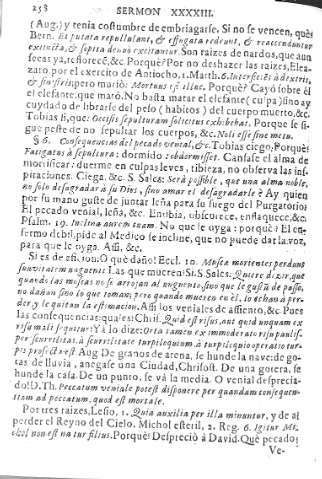 258 SERMON XXXXIII.
(Aug.) y tenia costumbre de embriagarse. Si no se vencen, què?
Bern. Et putata repullulant, & effugata redeunt, & reaccenduntur
extincta, & sopita denuò excitantur. Son raizes de nardos, que aun
secas ya, reflorecē, &c. Porquè? Por no deshazer las raizes, Elea-
zaro, por el exercito de Antiocho, 1. Math. 6. Interfecit à dextris,
& sinistris, pero muriò: Mortuus est illic. Porquè? Cayó sobre èl
el elefante, que marò. No basta matar el elefante (culpa) sino ay
cuydado de librarse del peso (habitos) del cuerpo muerto, &c.
Tobias si, que: Occisis sepulturam solicitus exhibebat. Porque se si-
gue peste de no sepultar los cuerpos, &c. Noli esse sine metu.
§ 6. Consequencias del pecado venial, &c. Tobias ciego, Porquè?
Fatigatus à sepultura: dormido: obdormisset. Cansase el alma de
mortificar: duerme en culpas leves, tibieza, no observa las ins-
piraciones. Ciega, &c. S. Sales: Serà possible, que una alma noble,
no solo desagradar à su Dios, sino amar el desagradarle? Ay quien
por su mano guste de juntar leña para su fuego del Purgatorio?
El pecado venial, leña, &c. Entibia, obscurece, enflaquece, &c.
Psalm. 19. Inclina aurem tuam. No que le oyga: porquè? El en-
fermo debil, pide al Medico se incline, que no puede dar la voz,
para que le oyga. Assi, &c.
Si es de aficion, O què daño! Eccl. 10. Musca morientes perdunt
suavitatem unguenti. Las que mueren? Si. S. Sales: Quiere dezir, que
quando las moscas no se arrojan al unguento, sino que le gustā de passo,
no dañan sino lo que toman; pero quando mueren en èl, lo echan a per-
der, y le quitan la estimacion. Assi los veniales de assiento, &c. Pues
las consequencias, quales? Chril. Quid est risus, aut quid unquam ex
risu mali sequitur? Yà lo dize: Orta tamen ex immoderato risu paulis-
per scurrilitas. à scurrilitate turpiloquium. à turpiloquio operatio tur-
pis profecta est. Aug. De granos de arena, se hunde la nave: de go-
tas de lluvia, anegase una Ciudad, Chrisost. De una gotera, se
hunde la casa. De un punto, se và la media. O venial desprecia-
do! D. Th. Peccatum veniale potest disponere per quandam consequen-
tiam ad peccatum, quod est mortale.
Por tres raizes, Lesio, 1. Quia auxilia per illa minuntur, y de al
perder el Reyno del Cielo. Michol esteril, 2. Reg. 6. Igitur Mi-
chol non est natus filius. Porquè? Despreciò à David. Què pecado?
Ve-